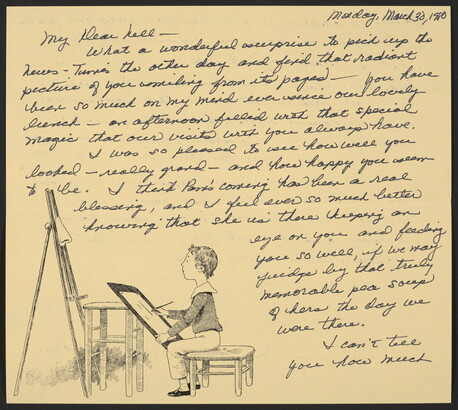 Monday, March 30, 1980
My Dear Nell –
What a wonderful surprise to pick up the
News-Times the other day and find that radiant
picture of you smiling from its pages – you have
been so much on my mind ever since our lovely
lunch – an afternoon filled with that special
magic that our visits with you always have.
I was so pleased to see how well you
looked – really grand – and how happy you seem
to be. I think Pam's coming has been a real
blessing, and I feel ever so much better
knowing that she is there keeping an
eye on you and feeding
you so well, if we may
judge by that truly
memorable pea soup
of hers the day we
were there.
I can't tell
you how much